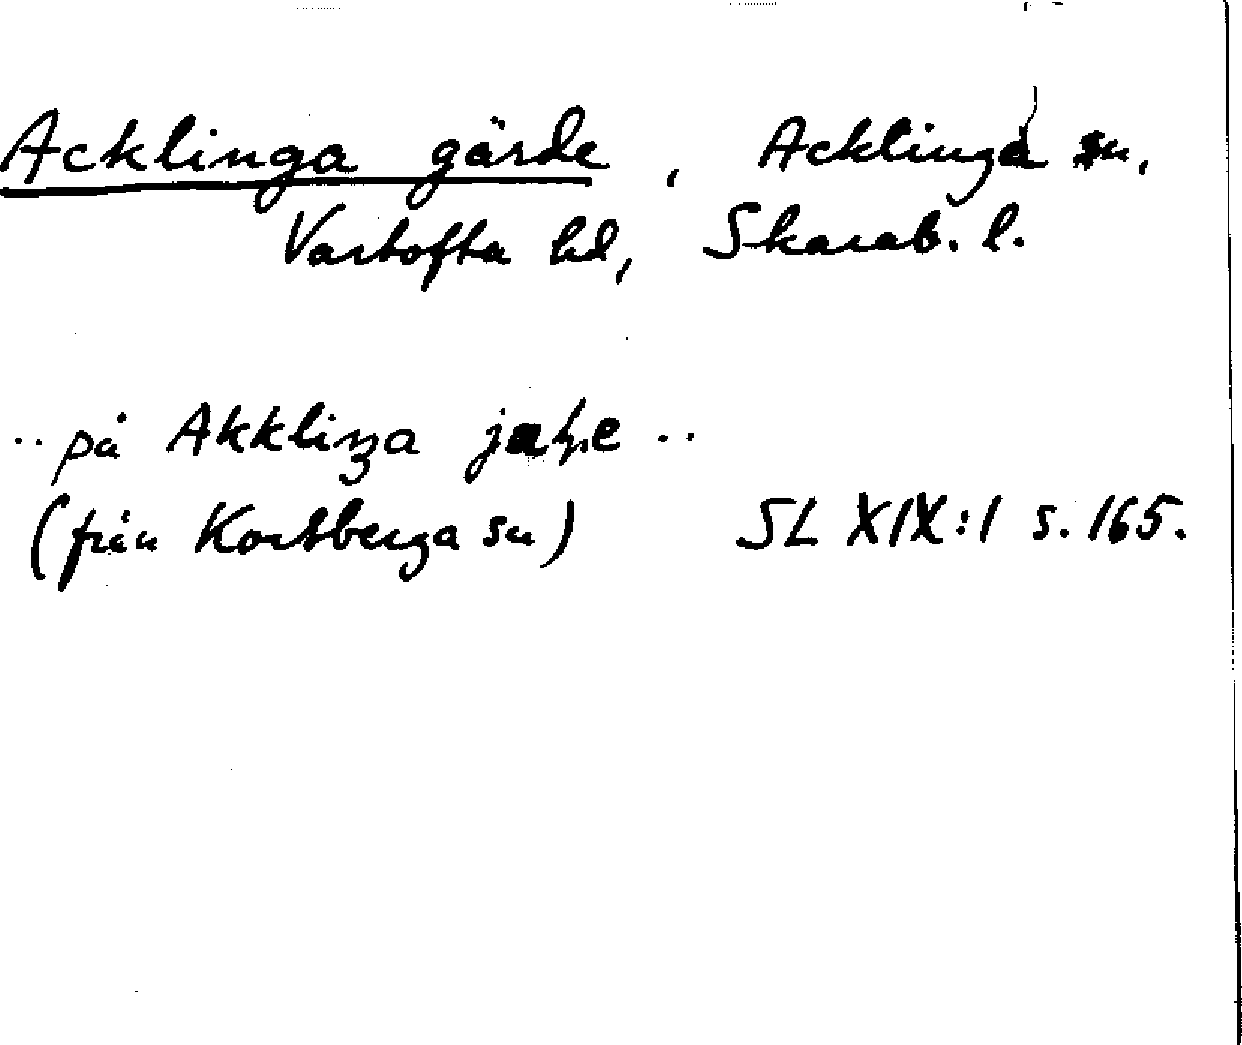 Acklinga gärde, Acklinga sn,
Vartofta hd, Skarab. l.
.. på Akkliŋa ..
(från Korsberga sn) SL XIX:1 s. 165.